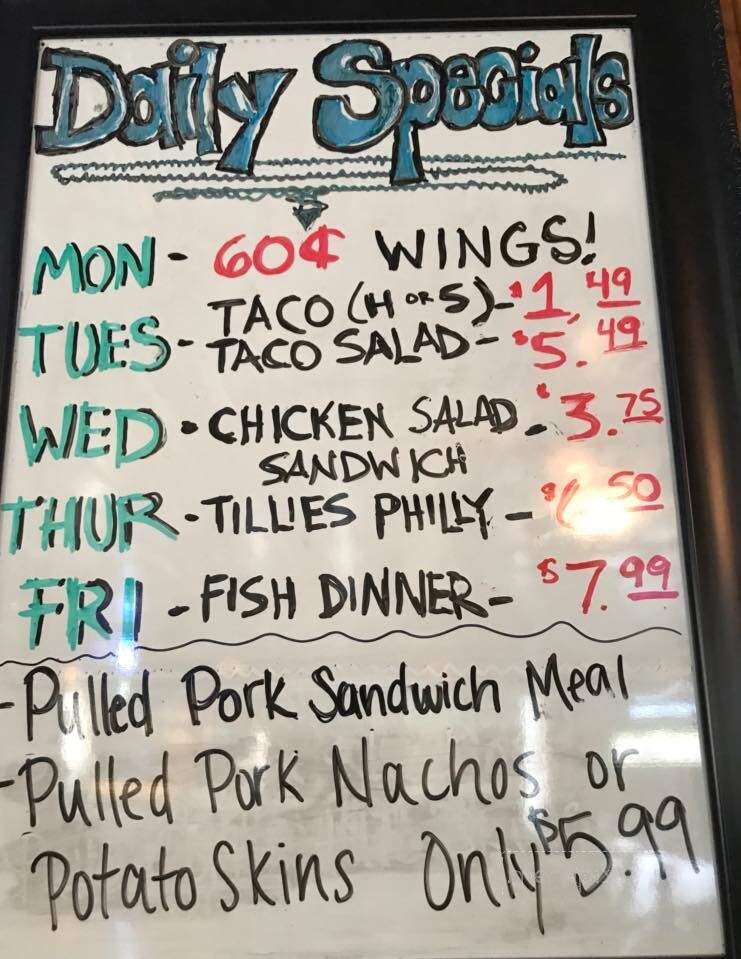 Daily Specials
MON - 60¢ WINGS!
TUES - TACO (H OR S) - $1.49
TACO SALAD - $5.49
WED • CHICKEN SALAD - $3.75
SANDWICH
THUR - TILLIES PHILLY - $6.50
FRI - FISH DINNER - $7.99
- Pulled Pork Sandwich Meal
- Pulled Pork Nachos or
Potato Skins Only $5.99